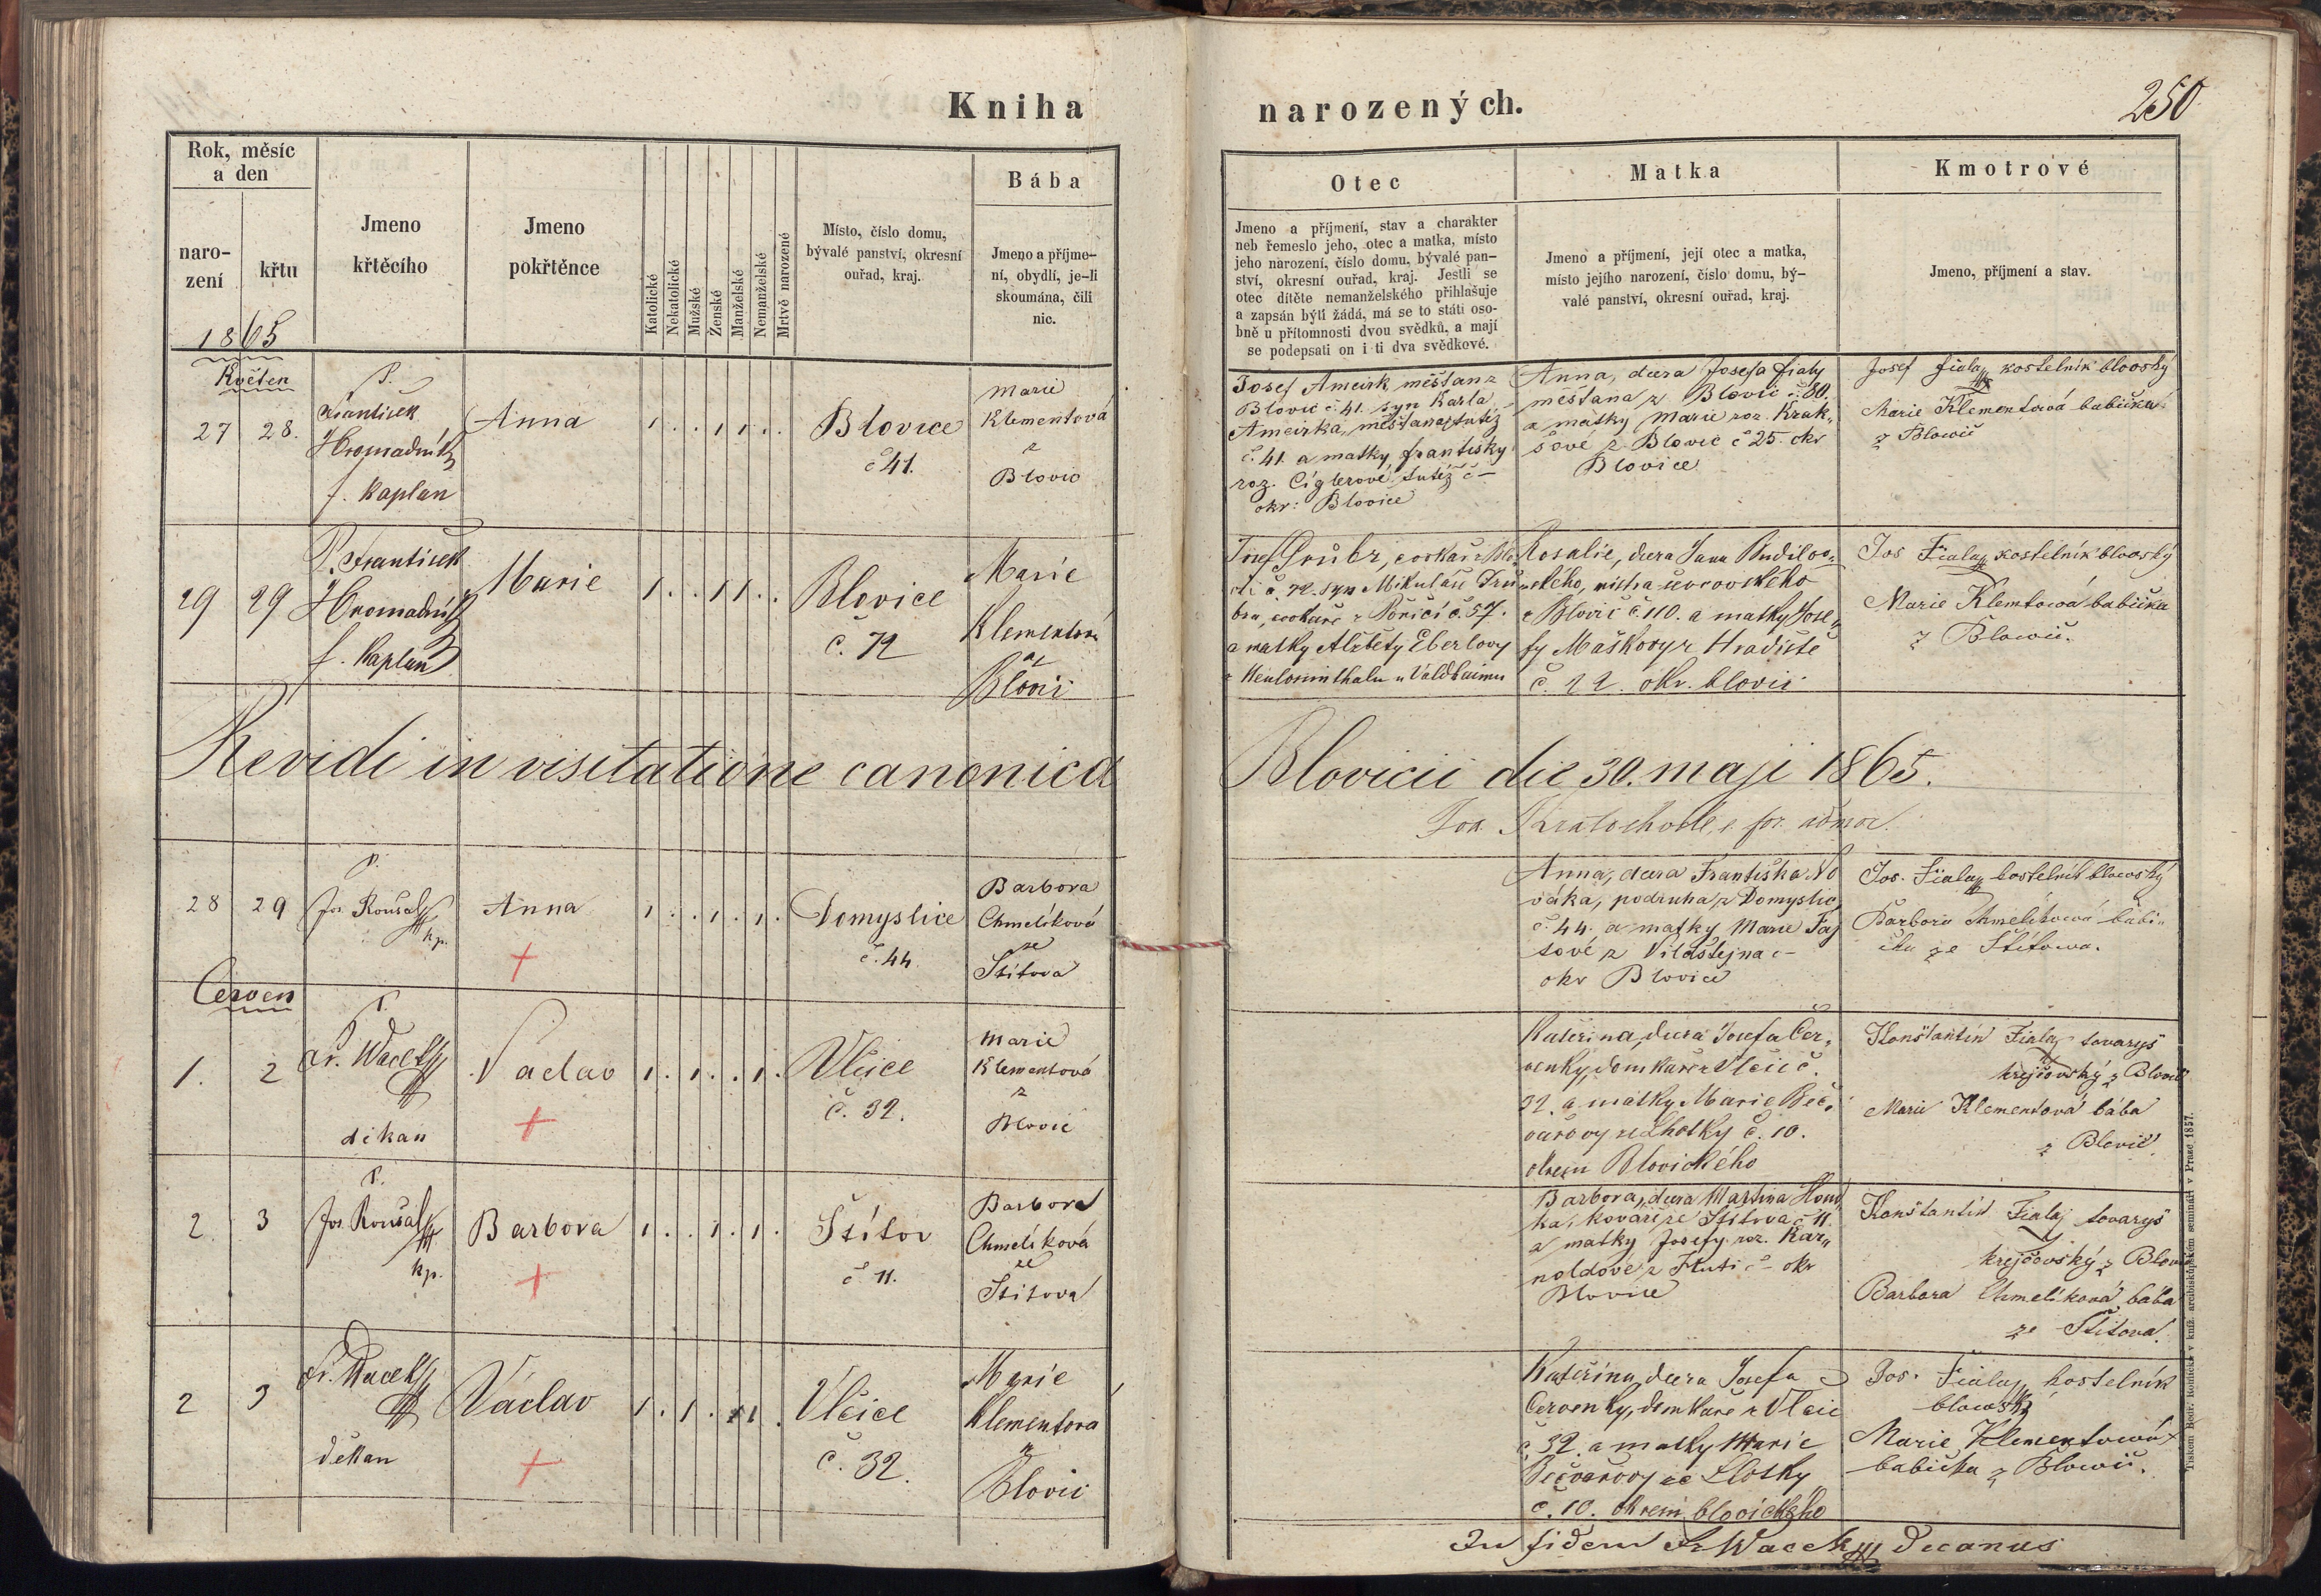 Kniha narozených.
250
Rok, měsíc
a den
naro-
zení
křtu
1865
Jmeno
křtěcího
Jmeno
pokřtěnce
Katolické
Nekatolické
Mužské
Ženské
Manželské
Nemanželské
Mrtvě narozené
Místo, číslo domu,
bývalé panství, okresní
ouřad, kraj.
Bába
Jmeno a příjme-
ní, obydlí, je-li
skoumána, čili
nic.
Otec
Jmeno a příjmení, stav a charakter
neb řemeslo jeho, otec a matka, místo
jeho narození, číslo domu, bývalé pan-
ství, okresní ouřad, kraj. Jestli se
otec dítěte nemanželského přihlašuje
a zapsán býti žádá, má se to státi oso-
bně u přítomnosti dvou svědků, a mají
se podepsati on i ti dva svědkové.
Matka
Jmeno a příjmení, její otec a matka,
místo jejího narození, číslo domu, bý-
valé panství, okresní ouřad, kraj.
Kmotrové
Jmeno, příjmení a stav.
Květen
27 28.
P.
František
Hromadník
f. kaplan
Anna
1 . . 1 1 . .
Blovice
č 41.
Marie
Klementová
z
Blovic
Josef Ameirk měšťan z
Blovic č. 41. syn Karla
Ameirka, měšťana, tutéž
č. 41. a matky Františky
roz. Cíglerové tutéž č –
okr: Blovice
Anna, dcera Josefa Fialy
měšťana z Blovic č. 80.
a matky Marie roz. Krak„
sové z Blovic č 25. okr
Blovice
Josef Fiala kostelník blovský
Marie Klementová babička
z Blowic
29 29
P. František
Hromadník
f. kaplan
Marie
1 . . 1 1 . .
Blovice
č. 72
Marie
Klementová
z
Blovic
Josef Grubr, cvokař z Blo„
vic č. 72. syn Mikuláše Gru„
bra, cvokaře z Poříčí č. 57.
a matky Alžběty Eberlovy
Rosalie, dcera Jana Budilov„
ského, mistra ševcovského
z Blovic č. 110. a matky Jose„
fy Maškovy z Hradiště
č. 22. okr. blovic
Jos Fiala kostelník blovský
Marie Klemtová babička
z Blowic.
Revidi in visitatione canonica Blovicii die 30. maji 1865.
28 29
P.
Jos. Roušal
kp.
Anna
1 . . 1 . 1 .
Domyslice
č. 44
Barbora
Chmelíková
ze
Štítova
Anna, dcera Františka No
váka, podruha z Domyslic,
č. 44. a matky Marie Faj
tové z Vildštejna č –
okr Blovice
Jos. Fiala kostelník blowský
Barbora Chmelíková babi„
čka ze Štítowa.
Červen
1. 2
P.
Fr. Wacek
děkan
Václav
1 . 1 . . 1 .
Vlčice
č. 32.
Marie
Klementová
z
Blovic
Kateřina, dcera Josefa Čer„
venky, domkaře z Vlčic č.
32. a matky Marie Beč„
vářovy ze Lhotky č. 10.
okresu Blovického
Konstantin Fiala tovaryš
krejčovský z Blovic
Marie Klementová bába
z Blovic.
2. 3
P.
Jos. Roušal
kp.
Barbora
1 . . 1 . 1 .
Štítov
č 11.
Barbora
Chmelíková
ze
Štítova
Barbora, dcera Martina
kováře ze Štítova č 11.
a matky Josefy roz. Kar„
noldové z Hutí č – okr
Blovice
Konstantin Fiala tovaryš
krejčovský z Blovic
Barbora Chmelíková bába
ze Štítova.
2 3
Fr. Wacek
děkan
Václav
Vlčice
č. 32.
Marie
Klementová
z
Blovic
Kateřina, dcera Josefa
Červenky, domkaře z Vlčic
č. 32. a matky Marie
Bečvářovy ze Lhotky
č. 10. okresu blovického
Jos. Fiala kostelník
blowský
Marie Klementowá
babička z Blowic.
In fidem Fr Wacek decanus